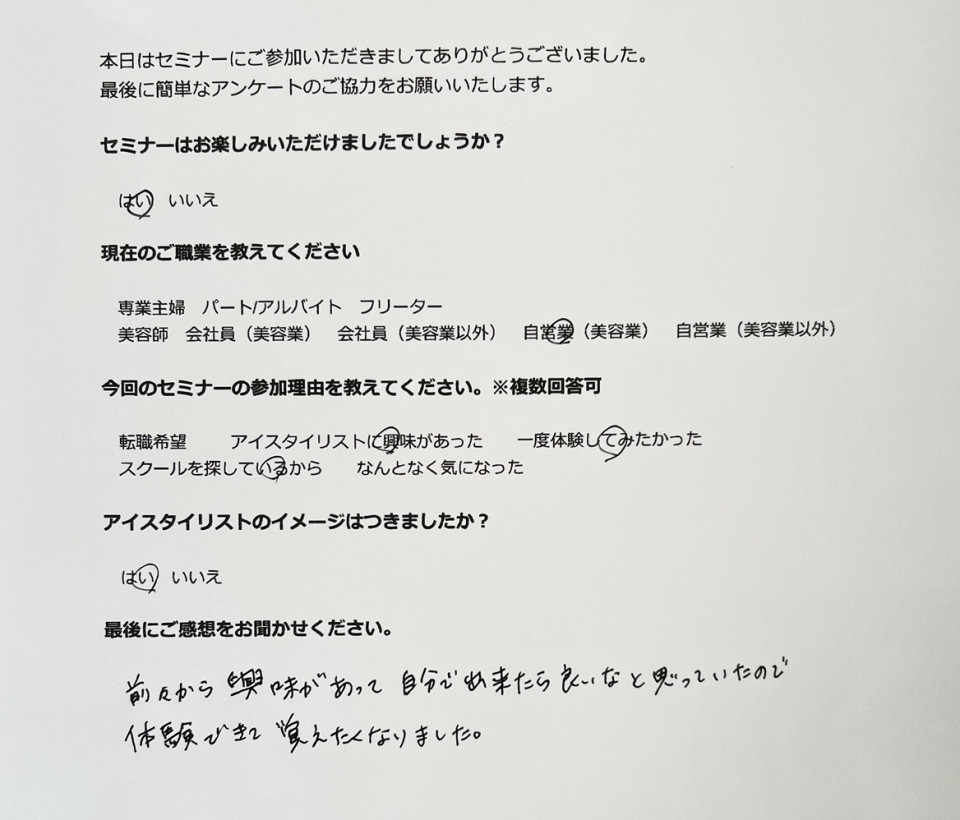 本日はセミナーにご参加いただきましてありがとうございました。
最後に簡単なアンケートのご協力をお願いいたします。
セミナーはお楽しみいただけましたでしょうか？
はい　いいえ
現在のご職業を教えてください
専業主婦　パート/アルバイト　フリーター
美容師　会社員（美容業）　会社員（美容業以外）　自営業（美容業）　自営業（美容業以外）
今回のセミナーの参加理由を教えてください。※複数回答可
転職希望　　アイスタイリストに興味があった　　一度体験してみたかった
スクールを探しているから　　なんとなく気になった
アイスタイリストのイメージはつきましたか？
はい　いいえ
最後にご感想をお聞かせください。
前々から興味があって自分で出来たら良いなと思っていたので
体験できて覚えたくなりました。